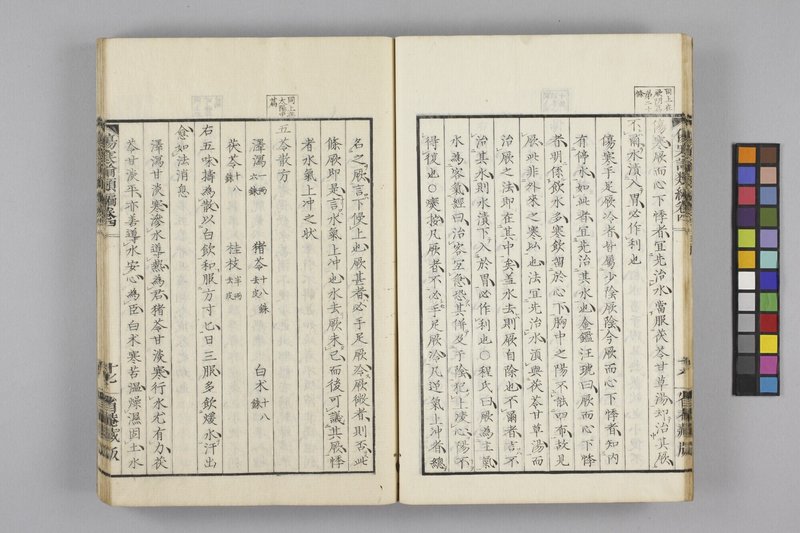 同上在
厥陰
第二十
條
傷寒厥而心下悸者宜先治水當服茯苓甘草湯却治其厥
不爾水漬入胃必作利也
傷寒手足厥冷者皆屬少陰厥陰今厥而心下悸者知內
有停水如此者宜先治其水也金鑑汪琥曰厥而心下悸
者明係飲水多寒飲留於心下胸中之陽不能四布故見
厥此非外來之寒比也法宜先治水須與茯苓甘草湯而
治厥之法即在其中矣蓋水去則厥自除也不爾者言不
治其水則水漬下入於胃必作利也○程氏曰厥為主氣
水為客氣經曰治客宜急恐其併及于陰犯上凌心陽不
得復也○奭按凡厥者不必手足厥冷凡逆氣上冲者總
名之厥言下便上也厥甚者必手足厥冷厥微者則否此
條厥即是言水氣上冲也水去厥未已而後可議其厥悸
者水氣上冲之狀
同上在
太陽中
篇
五苓散方
澤瀉一兩六銖 猪苓十八銖去皮 白朮十八銖
茯苓十八銖 桂枝半兩去皮
右五味擣為散以白飲和服方寸匕日三服多飲煖水汗出
愈如法消息
澤瀉甘淡寒滲水導熱為君猪苓甘淡寒行水尤有力茯
苓甘淡平亦善導水安心為臣白朮寒苦溫燥濕固土水
傷寒論類編卷四
廿七
省卷藏版